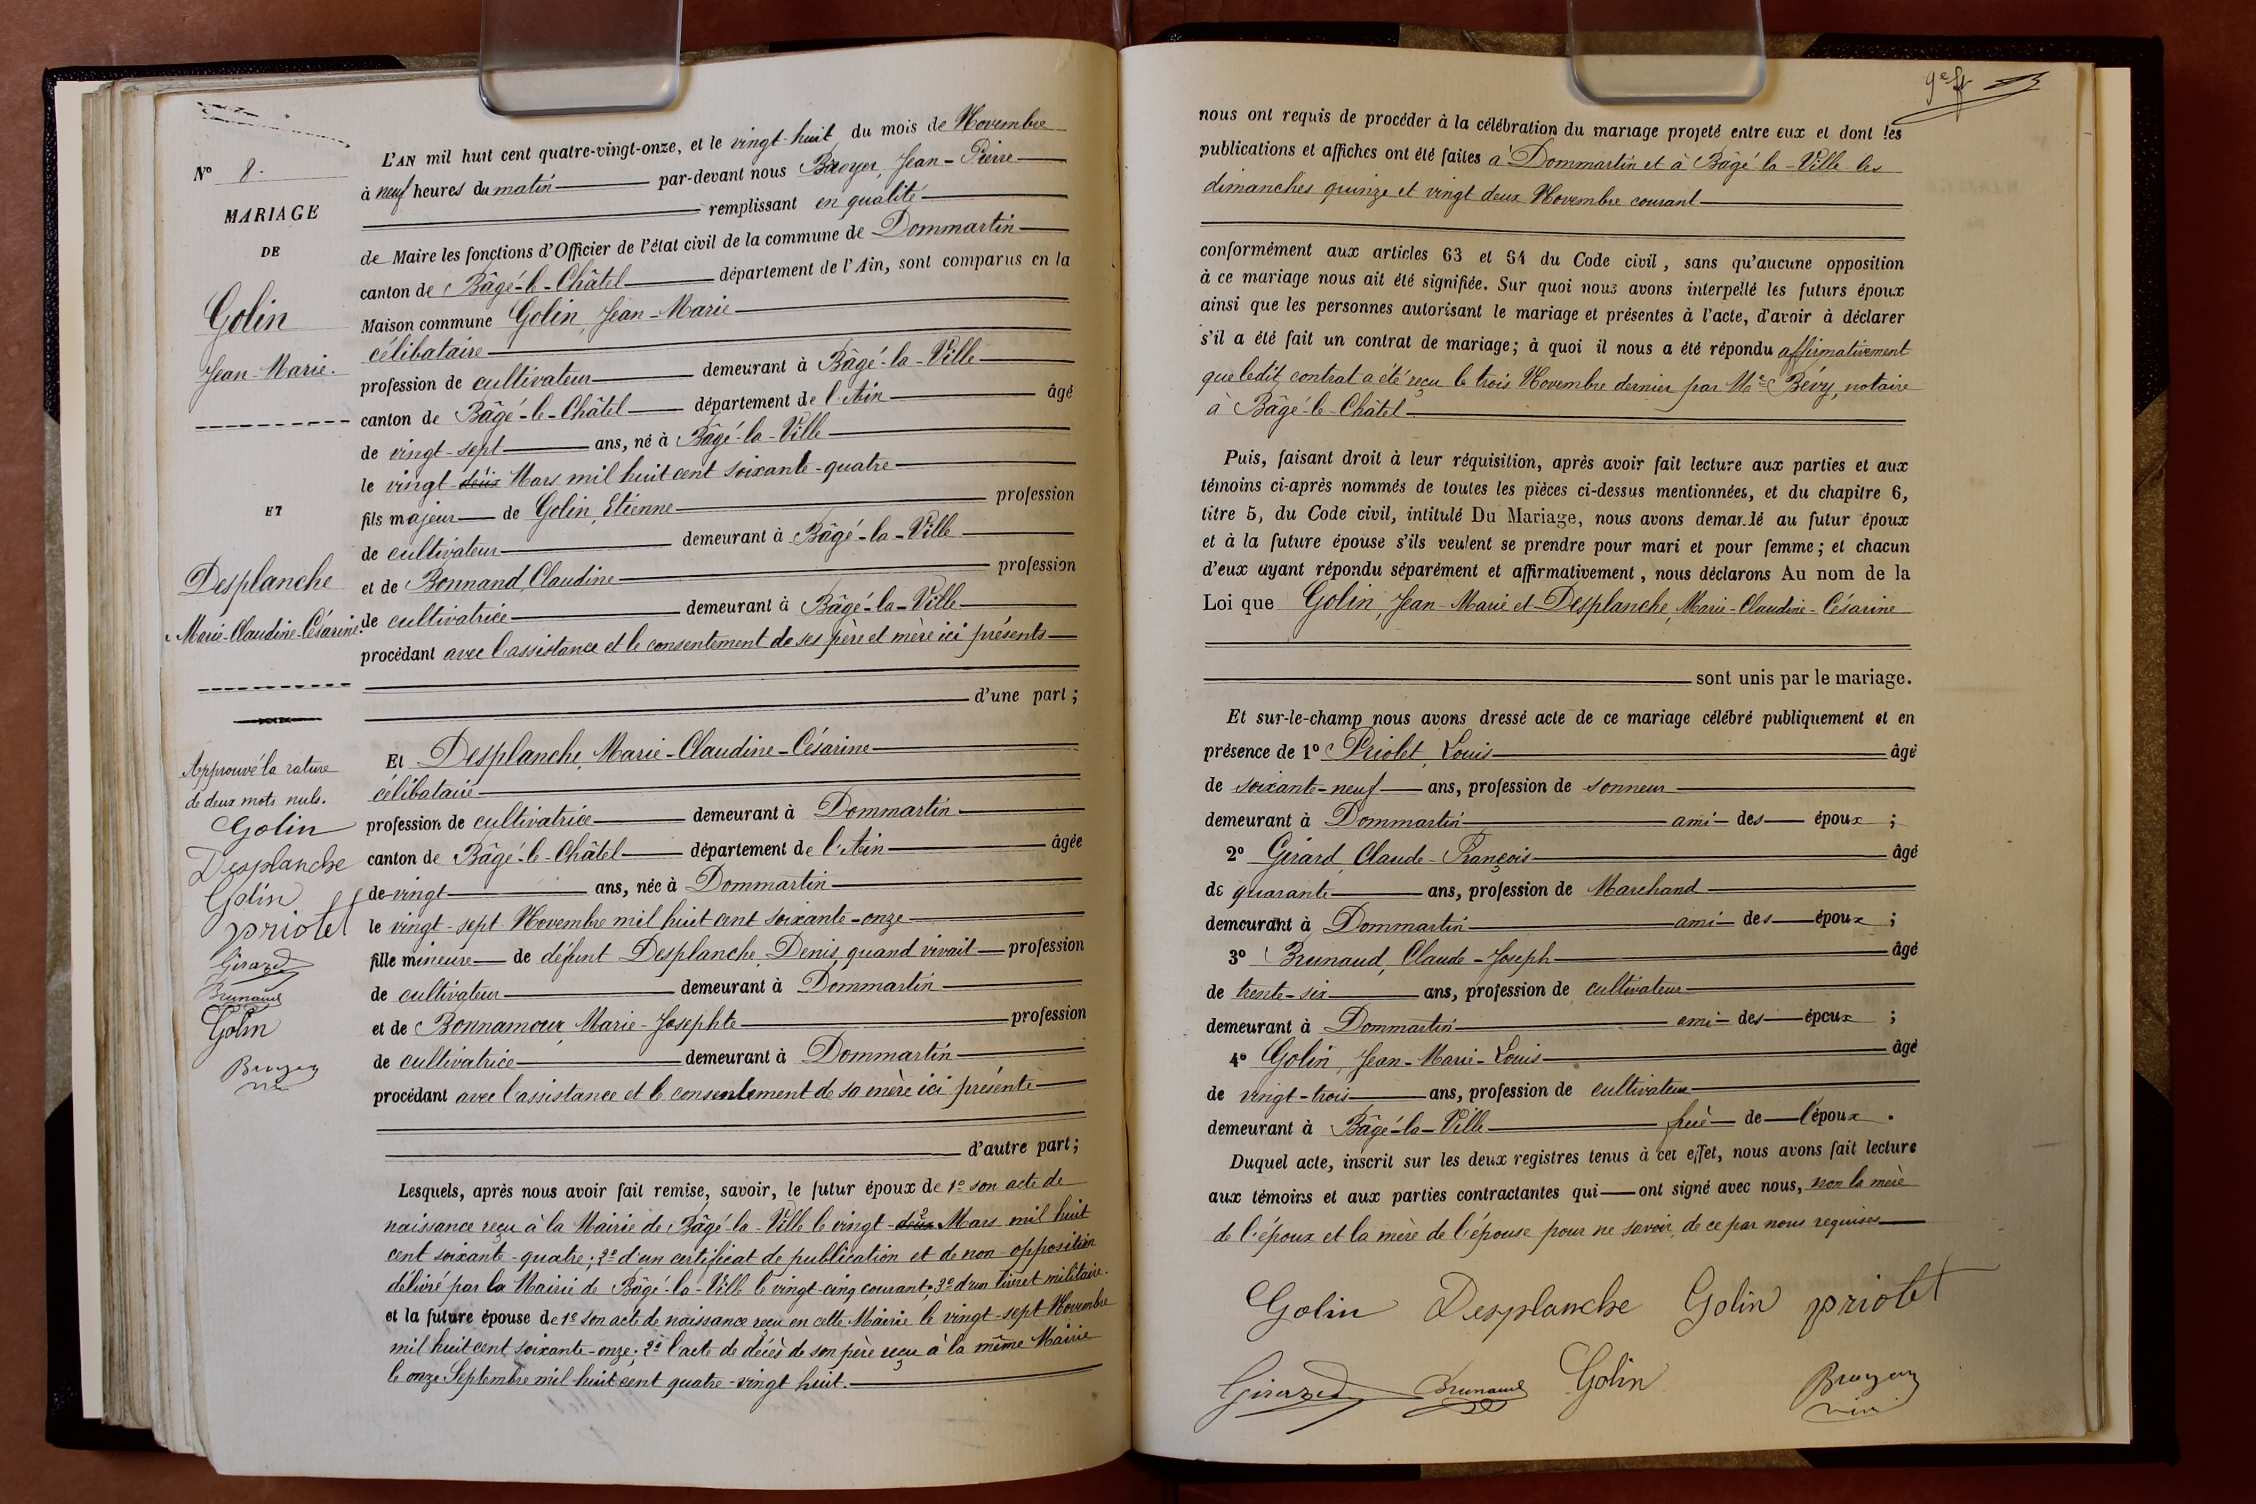 N° 8.
MARIAGE
DE
Golin
Jean-Marie.
ET
Desplanche
Marie-Claudine-Césarine.
Approuvé la rature
de deux mots nuls.
Golin
Desplanche
Golin
priolet
Girard
Brunaud
Golin
Broyer
L'AN mil huit cent quatre-vingt-onze, et le vingt-huit du mois de Novembre
à neuf heures du matin par-devant nous Broyer, Jean-Pierre
remplissant en qualité
de Maire les fonctions d'Officier de l'état civil de la commune de Dommartin
canton de Bâgé-le-Châtel département de l'Ain, sont comparus en la
Maison commune Golin, Jean-Marie
célibataire
profession de cultivateur demeurant à Bâgé-la-Ville
canton de Bâgé-le-Châtel département de l'Ain âgé
de vingt-sept ans, né à Bâgé-la-Ville
le vingt-deux Mars mil huit cent soixante-quatre
fils majeur de Golin, Etienne profession
de cultivateur demeurant à Bâgé-la-Ville
et de Bonnand, Claudine profession
de cultivatrice demeurant à Bâgé-la-Ville
procédant avec l'assistance et le consentement de ses père et mère ici présents
d'une part ;
Et Desplanche, Marie-Claudine-Césarine
célibataire
profession de cultivatrice demeurant à Dommartin
canton de Bâgé-le-Châtel département de l'Ain âgée
de vingt ans, née à Dommartin
le vingt-sept Novembre mil huit cent soixante-onze
fille mineure de défunt Desplanche, Denis, quand vivait profession
de cultivateur demeurant à Dommartin
et de Bonnamour, Marie-Josephte profession
de cultivatrice demeurant à Dommartin
procédant avec l'assistance et le consentement de sa mère ici présente
d'autre part ;
Lesquels, après nous avoir fait remise, savoir, le futur époux de 1° son acte de
naissance reçu à la Mairie de Bâgé-la-Ville le vingt-deux Mars mil huit
cent soixante-quatre ; 2° d'un certificat de publication et de non-opposition
délivré par la Mairie de Bâgé-la-Ville le vingt-cinq courant ; 3° d'un livret militaire.
et la future épouse de 1° son acte de naissance reçu en cette Mairie le vingt-sept Novembre
mil huit cent soixante-onze ; 2° l'acte de décès de son père reçu à la même Mairie
le onze Septembre mil huit cent quatre-vingt huit.
9e ff
nous ont requis de procéder à la célébration du mariage projeté entre eux et dont les
publications et affiches ont été faites à Dommartin et à Bâgé-la-Ville les
dimanches quinze et vingt deux Novembre courant
conformément aux articles 63 et 64 du Code civil, sans qu'aucune opposition
à ce mariage nous ait été signifiée. Sur quoi nous avons interpellé les futurs époux
ainsi que les personnes autorisant le mariage et présentes à l'acte, d'avoir à déclarer
s'il a été fait un contrat de mariage ; à quoi il nous a été répondu affirmativement
que ledit contrat a été reçu le trois Novembre dernier par Me Bévy, notaire
à Bâgé-le-Châtel
Puis, faisant droit à leur réquisition, après avoir fait lecture aux parties et aux
témoins ci-après nommés de toutes les pièces ci-dessus mentionnées, et du chapitre 6,
titre 5, du Code civil, intitulé Du Mariage, nous avons demandé au futur époux
et à la future épouse s'ils veulent se prendre pour mari et pour femme ; et chacun
d'eux ayant répondu séparément et affirmativement, nous déclarons Au nom de la
Loi que Golin, Jean-Marie et Desplanche, Marie-Claudine-Césarine
sont unis par le mariage.
Et sur-le-champ nous avons dressé acte de ce mariage célébré publiquement et en
présence de 1° Priolet, Louis âgé
de soixante-neuf ans, profession de sonneur
demeurant à Dommartin ami des époux ;
2° Girard, Claude-François âgé
de quarante ans, profession de Marchand
demeurant à Dommartin ami des époux ;
3° Brunaud, Claude-Joseph âgé
de trente-six ans, profession de cultivateur
demeurant à Dommartin ami des époux ;
4° Golin, Jean-Marie-Louis âgé
de vingt-trois ans, profession de cultivateur
demeurant à Bâgé-la-Ville frère de l'époux.
Duquel acte, inscrit sur les deux registres tenus à cet effet, nous avons fait lecture
aux témoins et aux parties contractantes qui ont signé avec nous, non la mère
de l'époux et la mère de l'épouse pour ne savoir, de ce par nous requises
Golin Desplanche Golin priolet
Girard Brunaud Golin Broyer